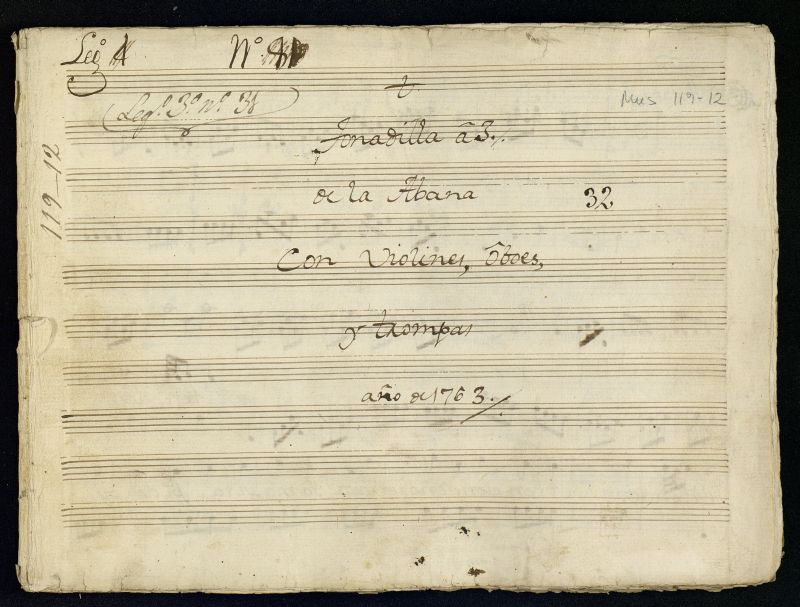 Leg.º
Nº.
Leg.º 3.º nº. 31
Mus 119-12
119-12
t.
Tonadilla â 3./
de la Abana
32
Con violines, ôboes,
y trompas
año de 1763./